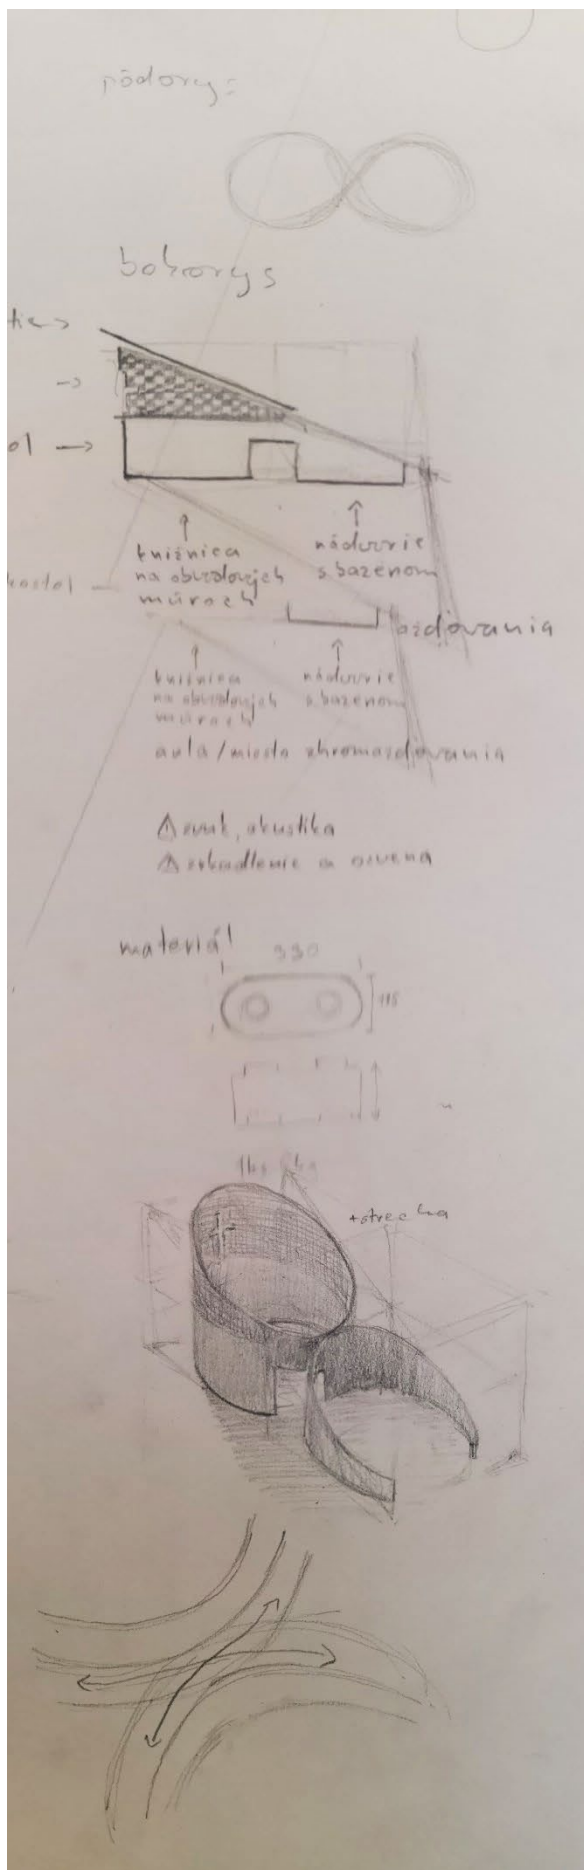 pôdorys:
bokorys
tie →
→
ol →
knižnica
na obvodových
múroch
nádvorie
s bazenom
kostol
ožďovania
knižnica
na obvodových
múroch
nádvorie
s bazenom
aula / miesto zhromažďovania
⚠ zvuk, akustika
⚠ zrkadlenie a ozvena
materiál
330
115
+strecha